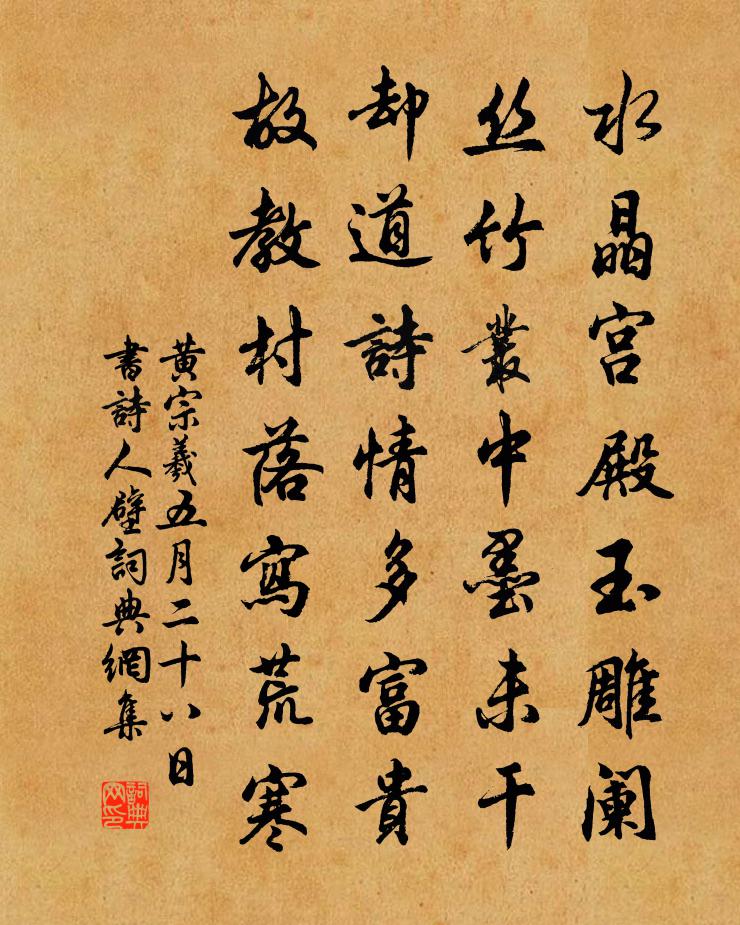 水晶宫殿玉雕阑
丝竹叢中墨未干
却道詩情多富貴
故教村落寫荒寒
黄宗羲五月二十八日
書詩人壁詞典網集
詞典网印